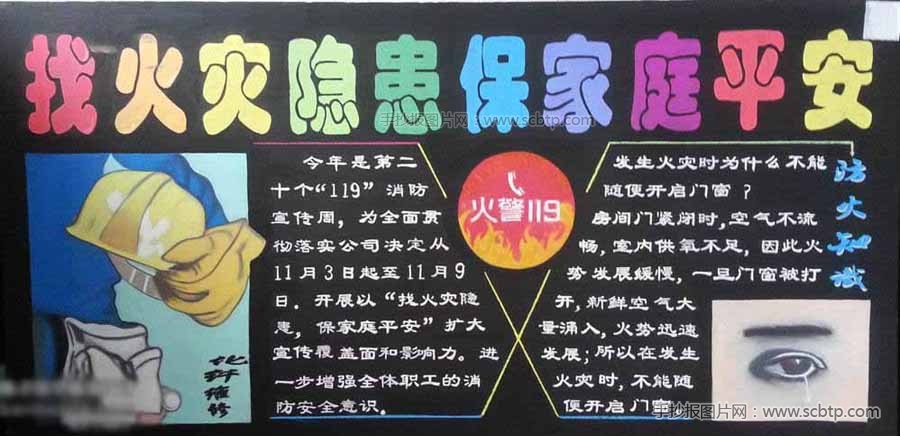 找火灾隐患保家庭平安
手抄报图片网：www.scbtp.com
今年是第二
十个“119”消防
宣传周，为全面贯
彻落实公司决定从
11月3日起至11月9
日．开展以“找火灾隐
患，保家庭平安”扩大
宣传覆盖面和影响力。进
一步增强全体职工的消
防安全意识。
火警119
发生火灾时为什么不能
随便开启门窗？
房间门紧闭时,空气不流
畅,室内供氧不足，因此火
势发展缓慢，一旦门窗被打
开,新鲜空气大
量涌入，火势迅速
发展;所以在发生
火灾时,不能随
便开启门窗
防火知识
化纤维修
手抄报图片网：www.scbtp.com